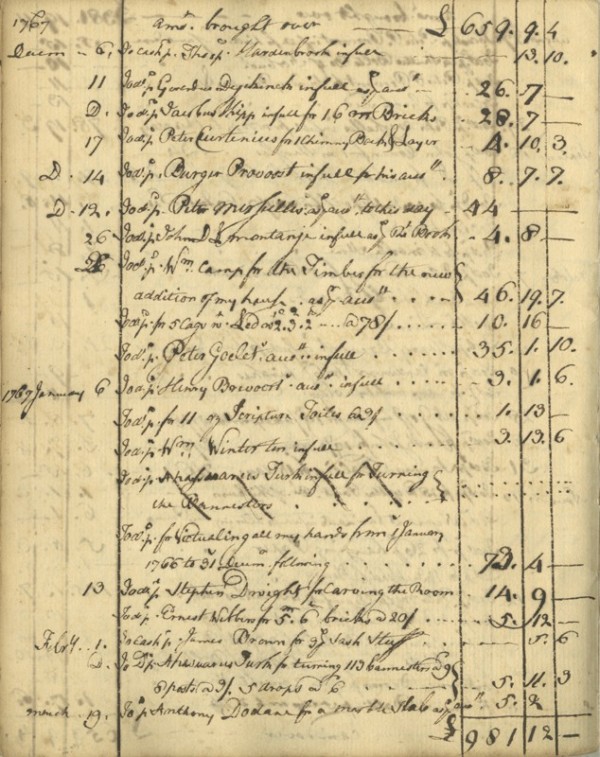 1767 amo. brought over £ 659. 9. 4
Decem - 6, To cash p. Hardenbrook in full 13. 10.
11 To do. p. Gerardus Duyckinck in full as p accot 26. 7 —
D. To do. p. Jacobus Kipp in full for 16 m Bricks 28. 7 —
17 To do. p. Peter Curtenius for 1 Chimney Back & Layer 4. 10. 3.
D. 14 To do. p. Burger Provoost in full for his accot. 8. 7. 7.
D. 12. To do. p. Peter Mersellis as p accot. to this day 44 — —
26 To do. p. John montanje in full as p Rt. Book 4. 8 —
26 To do. p. Wm. Camp for the Timber for the new
addition of my house . as p accot. 46. 19. 7.
To do. p. for 5 Cags w. Led 2. 3. 2 a 78/ 10. 16 —
To do. p. Peter Goelet. accot. in full 35. 1. 10.
1767 January 6 To do. p. Henry Brevoort. accot. in full 3. 1. 6.
To do. p. for 11 Scripture Toiles 1. 13 —
To do. p. Wm. Winterton in full 3. 13. 6
To do. p. Ahasuarus Turk in full for Turning
the Bannesters
To do. p. for Victualing all my hands from 1 January
1766 to 31 Decem following 73. 4 —
13 To do. p. Stephen Dwight for Carving the Room 14. 9 —
To do. p. Ernest for 5. 6 bricks a 20/ 5. 12 —
Febry . 1. To cash p. James Brown for Sash Stuff 5. 6
D. To Do p. Ahasuarus Turk for turning 113 bannesters a 9
6 posts a 3/. 5 drops a 6 5. 11. 3
march . 19. To do p. Anthony Dodane for a marble Slab as p accot. 5. 2
£ 981 12 —